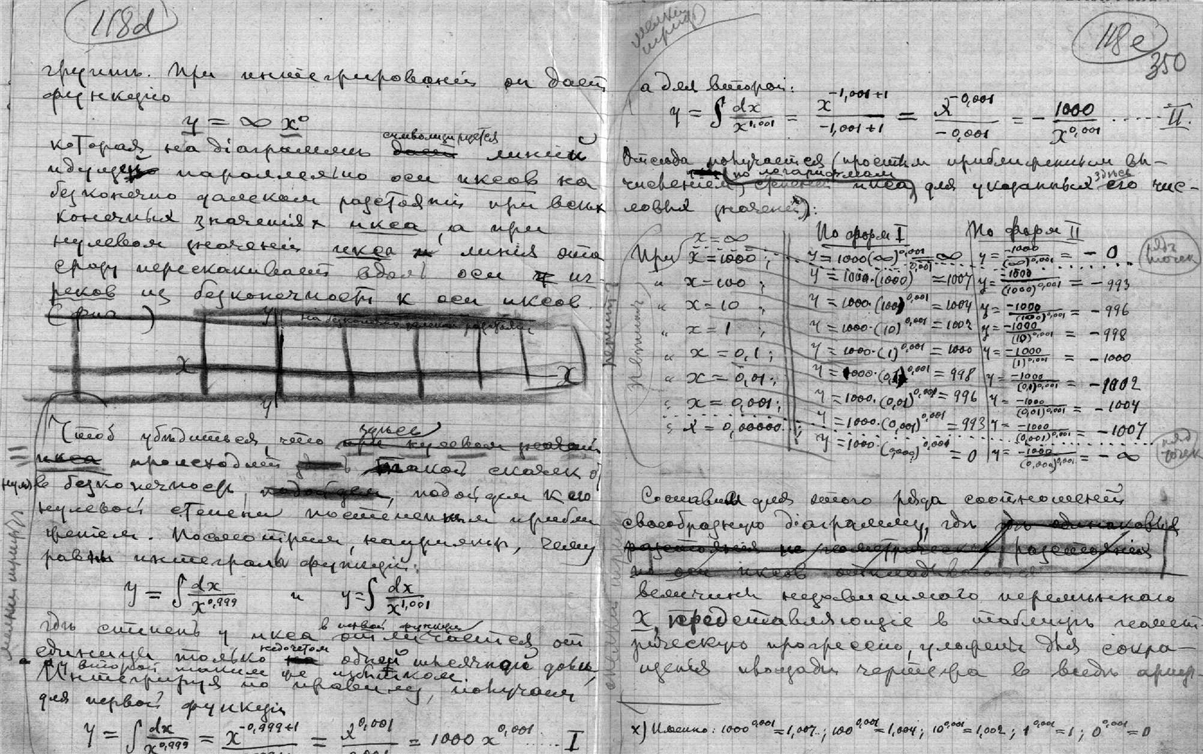 118d
группъ. При интегрированіи он дает
функцію
y = ∞ x⁰
символизируется
которая на діаграммѣ линіей
идущей параллельно оси иксов на
безконечно далеком разстояніи при всѣх
конечных значеніях икса, а при
нулевом значеніи икса линія эта
сразу перескакивает вдоль оси игреков
из безконечности к оси иксов
(фиг )
y
x x
y
здѣсь
Чтоб убѣдиться, что при нулевом
икса происходит такой скачек от
нуля в безконечность, подойдем к его
нулевой степени постепенным приближеніем.
Посмотрим, например, чему
равны интегралы функцій:
y = ∫ dx/x^0,999 и y = ∫ dx/x^1,001
в первой функціи
гдѣ степень у икса отличается от
недочетом
единицы только одной тысячной доли,
а у второй таким же избытком.
Интегрируя по правилу, получаем
для первой функціи
y = ∫ dx/x^0,999 = x^-0,999+1 = x^0,001/0,001 = 1000 x^0,001 ..... I
мелкий шрифт
118e
350
мелкій шрифт
а для второй:
y = ∫ dx/x^1,001 = x^-1,001+1/-1,001+1 = x^-0,001/-0,001 = - 1000/x^0,001 ..... II
Отсюда получается (простым приближенным вы-
по логарифмам
числением икса) для указанных здѣсь его чис-
ловых значеній x):
По форм I По форм II
x = ∞ y = 1000(∞)^0,001 = ∞ y = -1000/(∞)^0,001 = - 0
При x = 1000; y = 1000·(1000)^0,001 = 1007 y = -1000/(1000)^0,001 = - 993
" x = 100; y = 1000·(100)^0,001 = 1004 y = -1000/(100)^0,001 = - 996
" x = 10; y = 1000·(10)^0,001 = 1002 y = -1000/(10)^0,001 = - 998
" x = 1; y = 1000·(1)^0,001 = 1000 y = -1000/(1)^0,001 = - 1000
" x = 0,1; y = 1000·(0,1)^0,001 = 998 y = -1000/(0,1)^0,001 = - 1002
" x = 0,01; y = 1000·(0,01)^0,001 = 996 y = -1000/(0,01)^0,001 = - 1004
" x = 0,001; y = 1000·(0,001)^0,001 = 993 y = -1000/(0,001)^0,001 = - 1007
" x = 0,00000; y = 1000·(0,000)^0,000 = 0 y = -1000/(0,000)^0,001 = - ∞
ряд точек
ряд точек
Составим для этого ряда соотношеній
своеобразную діаграмму, гдѣ
величины независимаго переменнаго
x, представляющіе в таблицѣ геомет-
рическую прогрессію, умѣрены для сокра-
щенія площади чертежа в видѣ
x) Именно: 1000^0,001 = 1,007; 100^0,001 = 1,004; 10^0,001 = 1,002; 1^0,001 = 1; 0^0,001 = 0